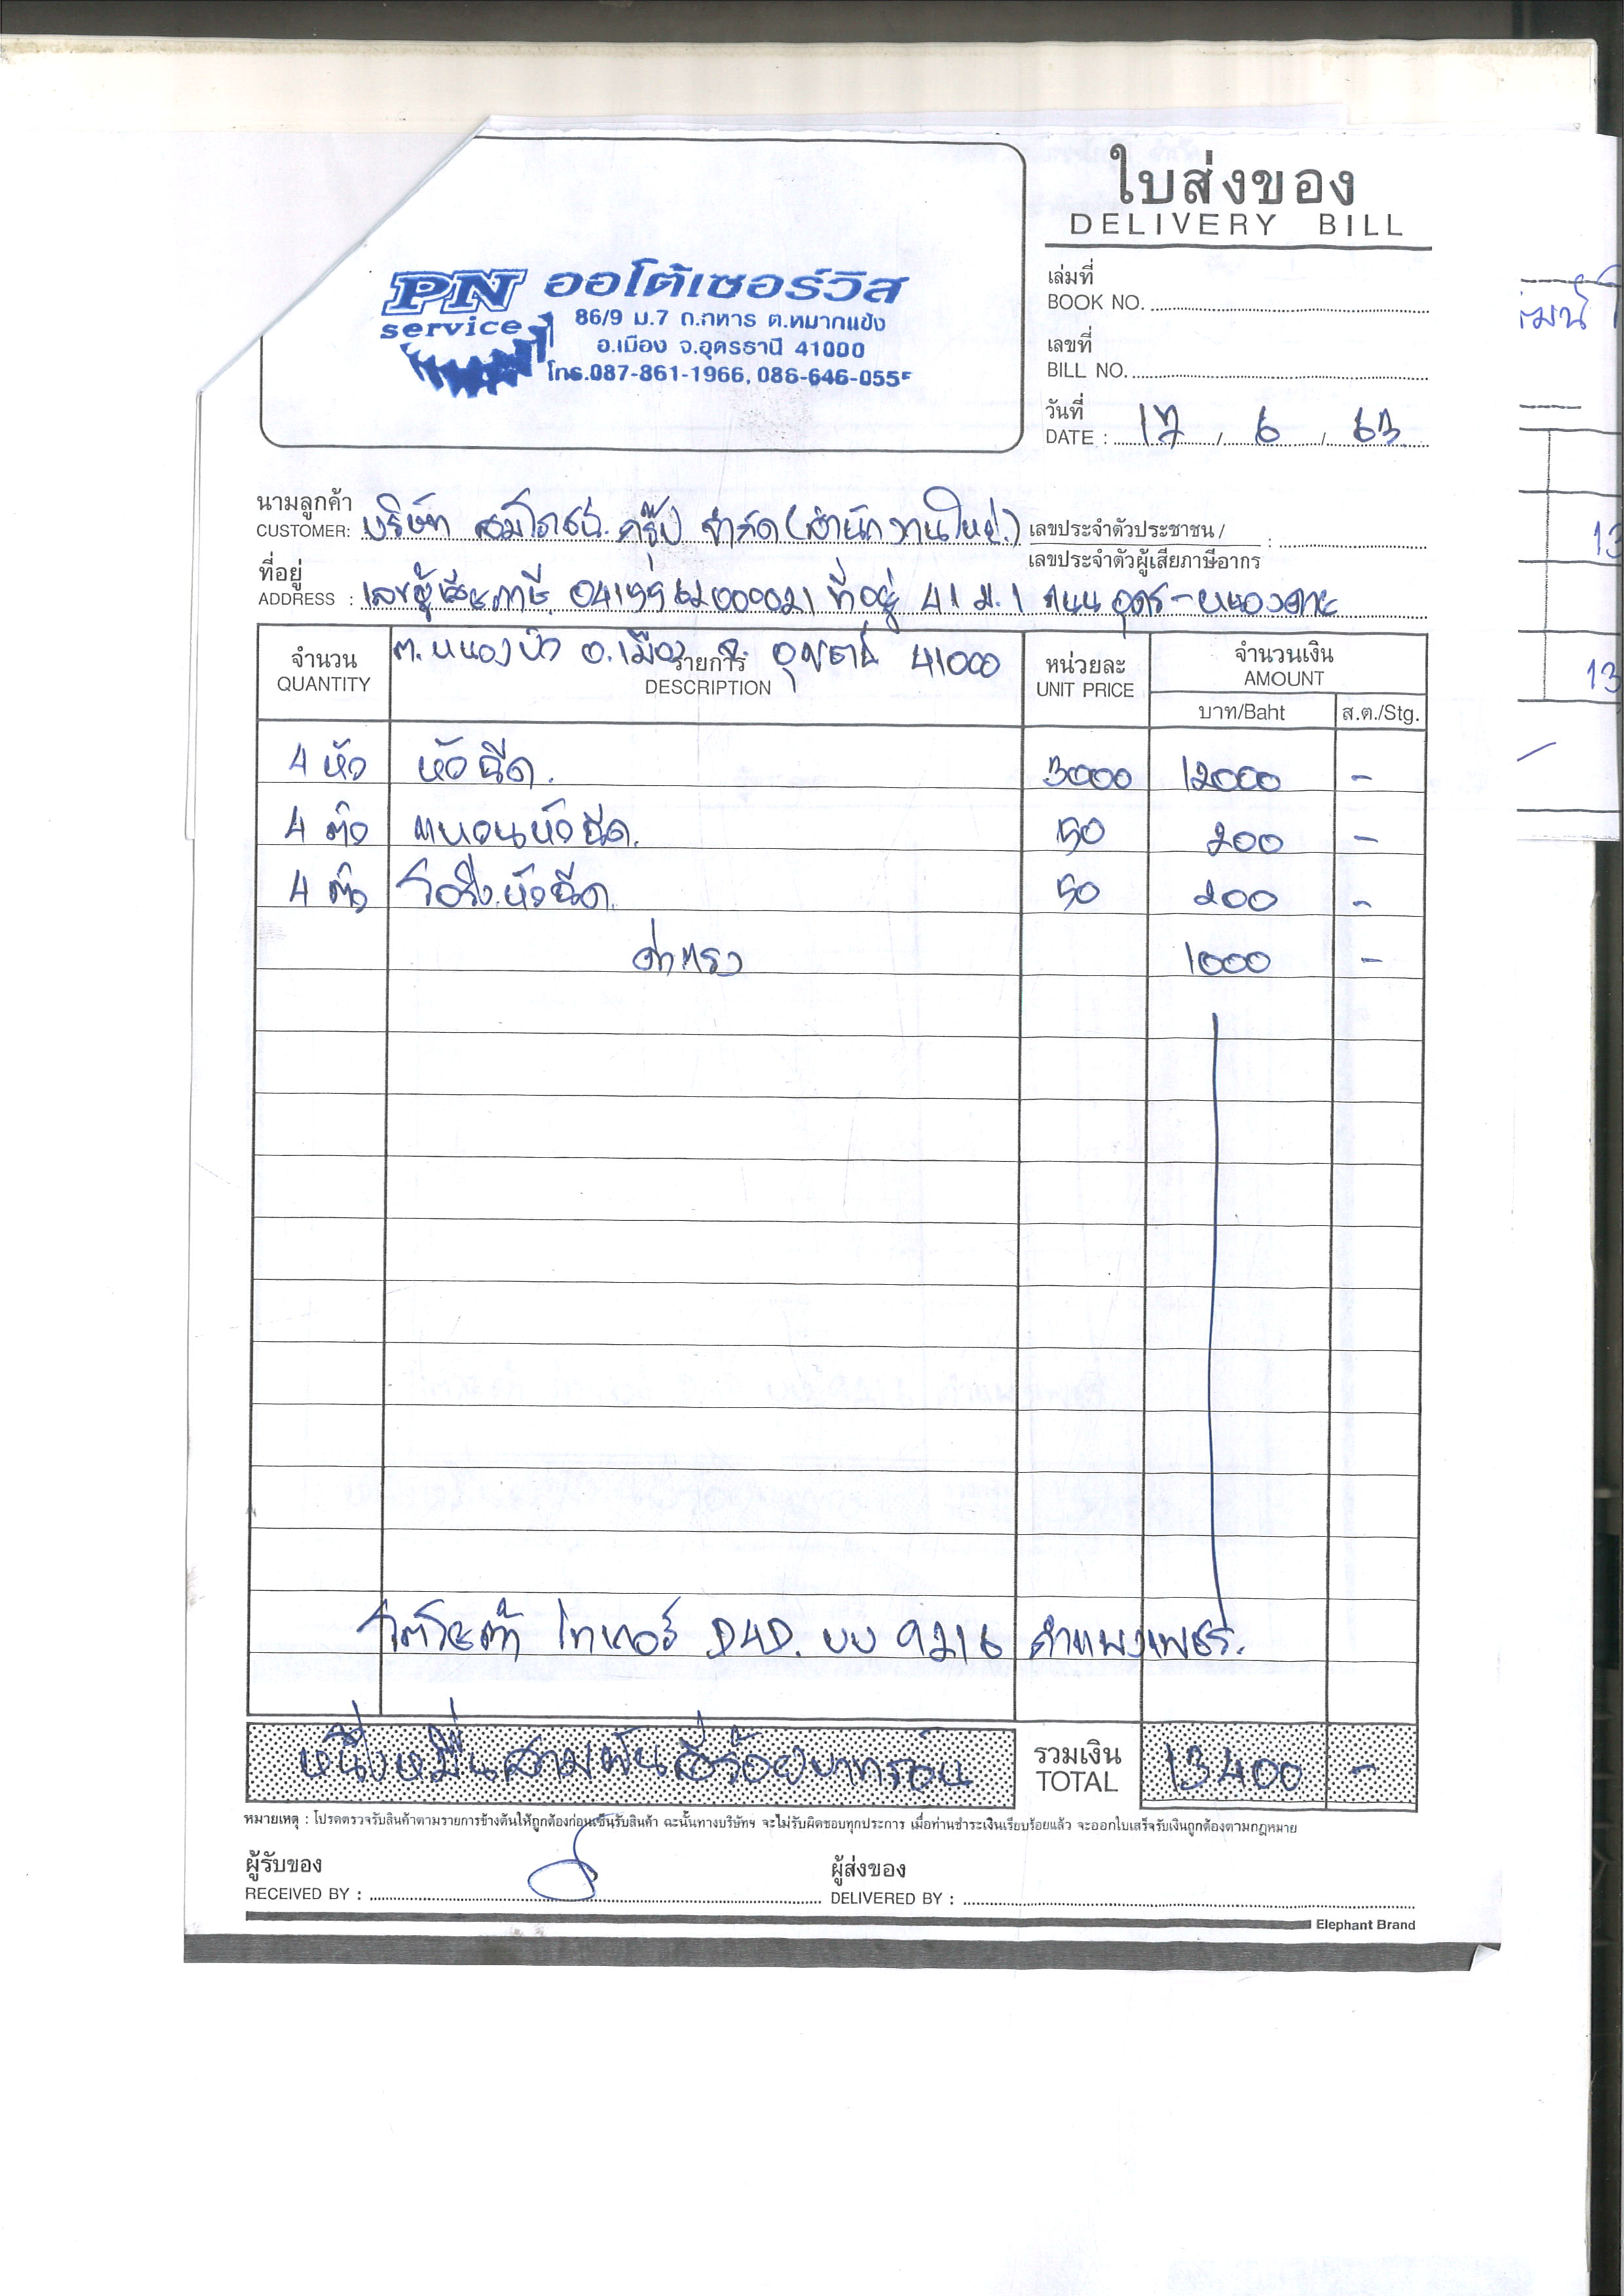 ใบส่งของ
DELIVERY BILL
PN ออโต้เซอร์วิส
service
86/9 ม.7 ถ.ทหาร ต.หมากแข้ง
อ.เมือง จ.อุดรธานี 41000
โทร.087-861-1966, 086-646-055
เล่มที่
BOOK NO.
เลขที่
BILL NO.
วันที่
DATE : 17 / 6 / 63
นามลูกค้า
CUSTOMER: บริษัท กรุ๊ป จำกัด (สำนักงานใหญ่)
เลขประจำตัวประชาชน /
เลขประจำตัวผู้เสียภาษีอากร :
ที่อยู่
ADDRESS : เลขผู้เสียภาษี ที่อยู่ 41 ม.1 ถนน อุดร-หนองคาย
ต.หนองบัว อ.เมือง จ. 41000
จำนวน รายการ หน่วยละ จำนวนเงิน
QUANTITY DESCRIPTION UNIT PRICE AMOUNT
บาท/Baht ส.ต./Stg.
4 หัว หัวฉีด. 3000 12000 -
4 ตัว แหวนหัวฉีด. 50 200 -
4 ตัว โอริงหัวฉีด. 50 200 -
ค่าแรง 1000 -
โตโยต้า ไทเกอร์ D4D. บบ 9216 กำแพงเพชร.
หนึ่งหมื่นสามพันสี่ร้อยบาทถ้วน
รวมเงิน 13400 -
TOTAL
หมายเหตุ : โปรดตรวจรับสินค้าตามรายการข้างต้นให้ถูกต้องก่อนเซ็นรับสินค้า ฉะนั้นทางบริษัทฯ จะไม่รับผิดชอบทุกประการ เมื่อท่านชำระเงินเรียบร้อยแล้ว จะออกใบเสร็จรับเงินถูกต้องตามกฎหมาย
ผู้รับของ
RECEIVED BY :
ผู้ส่งของ
DELIVERED BY :
Elephant Brand
13
13